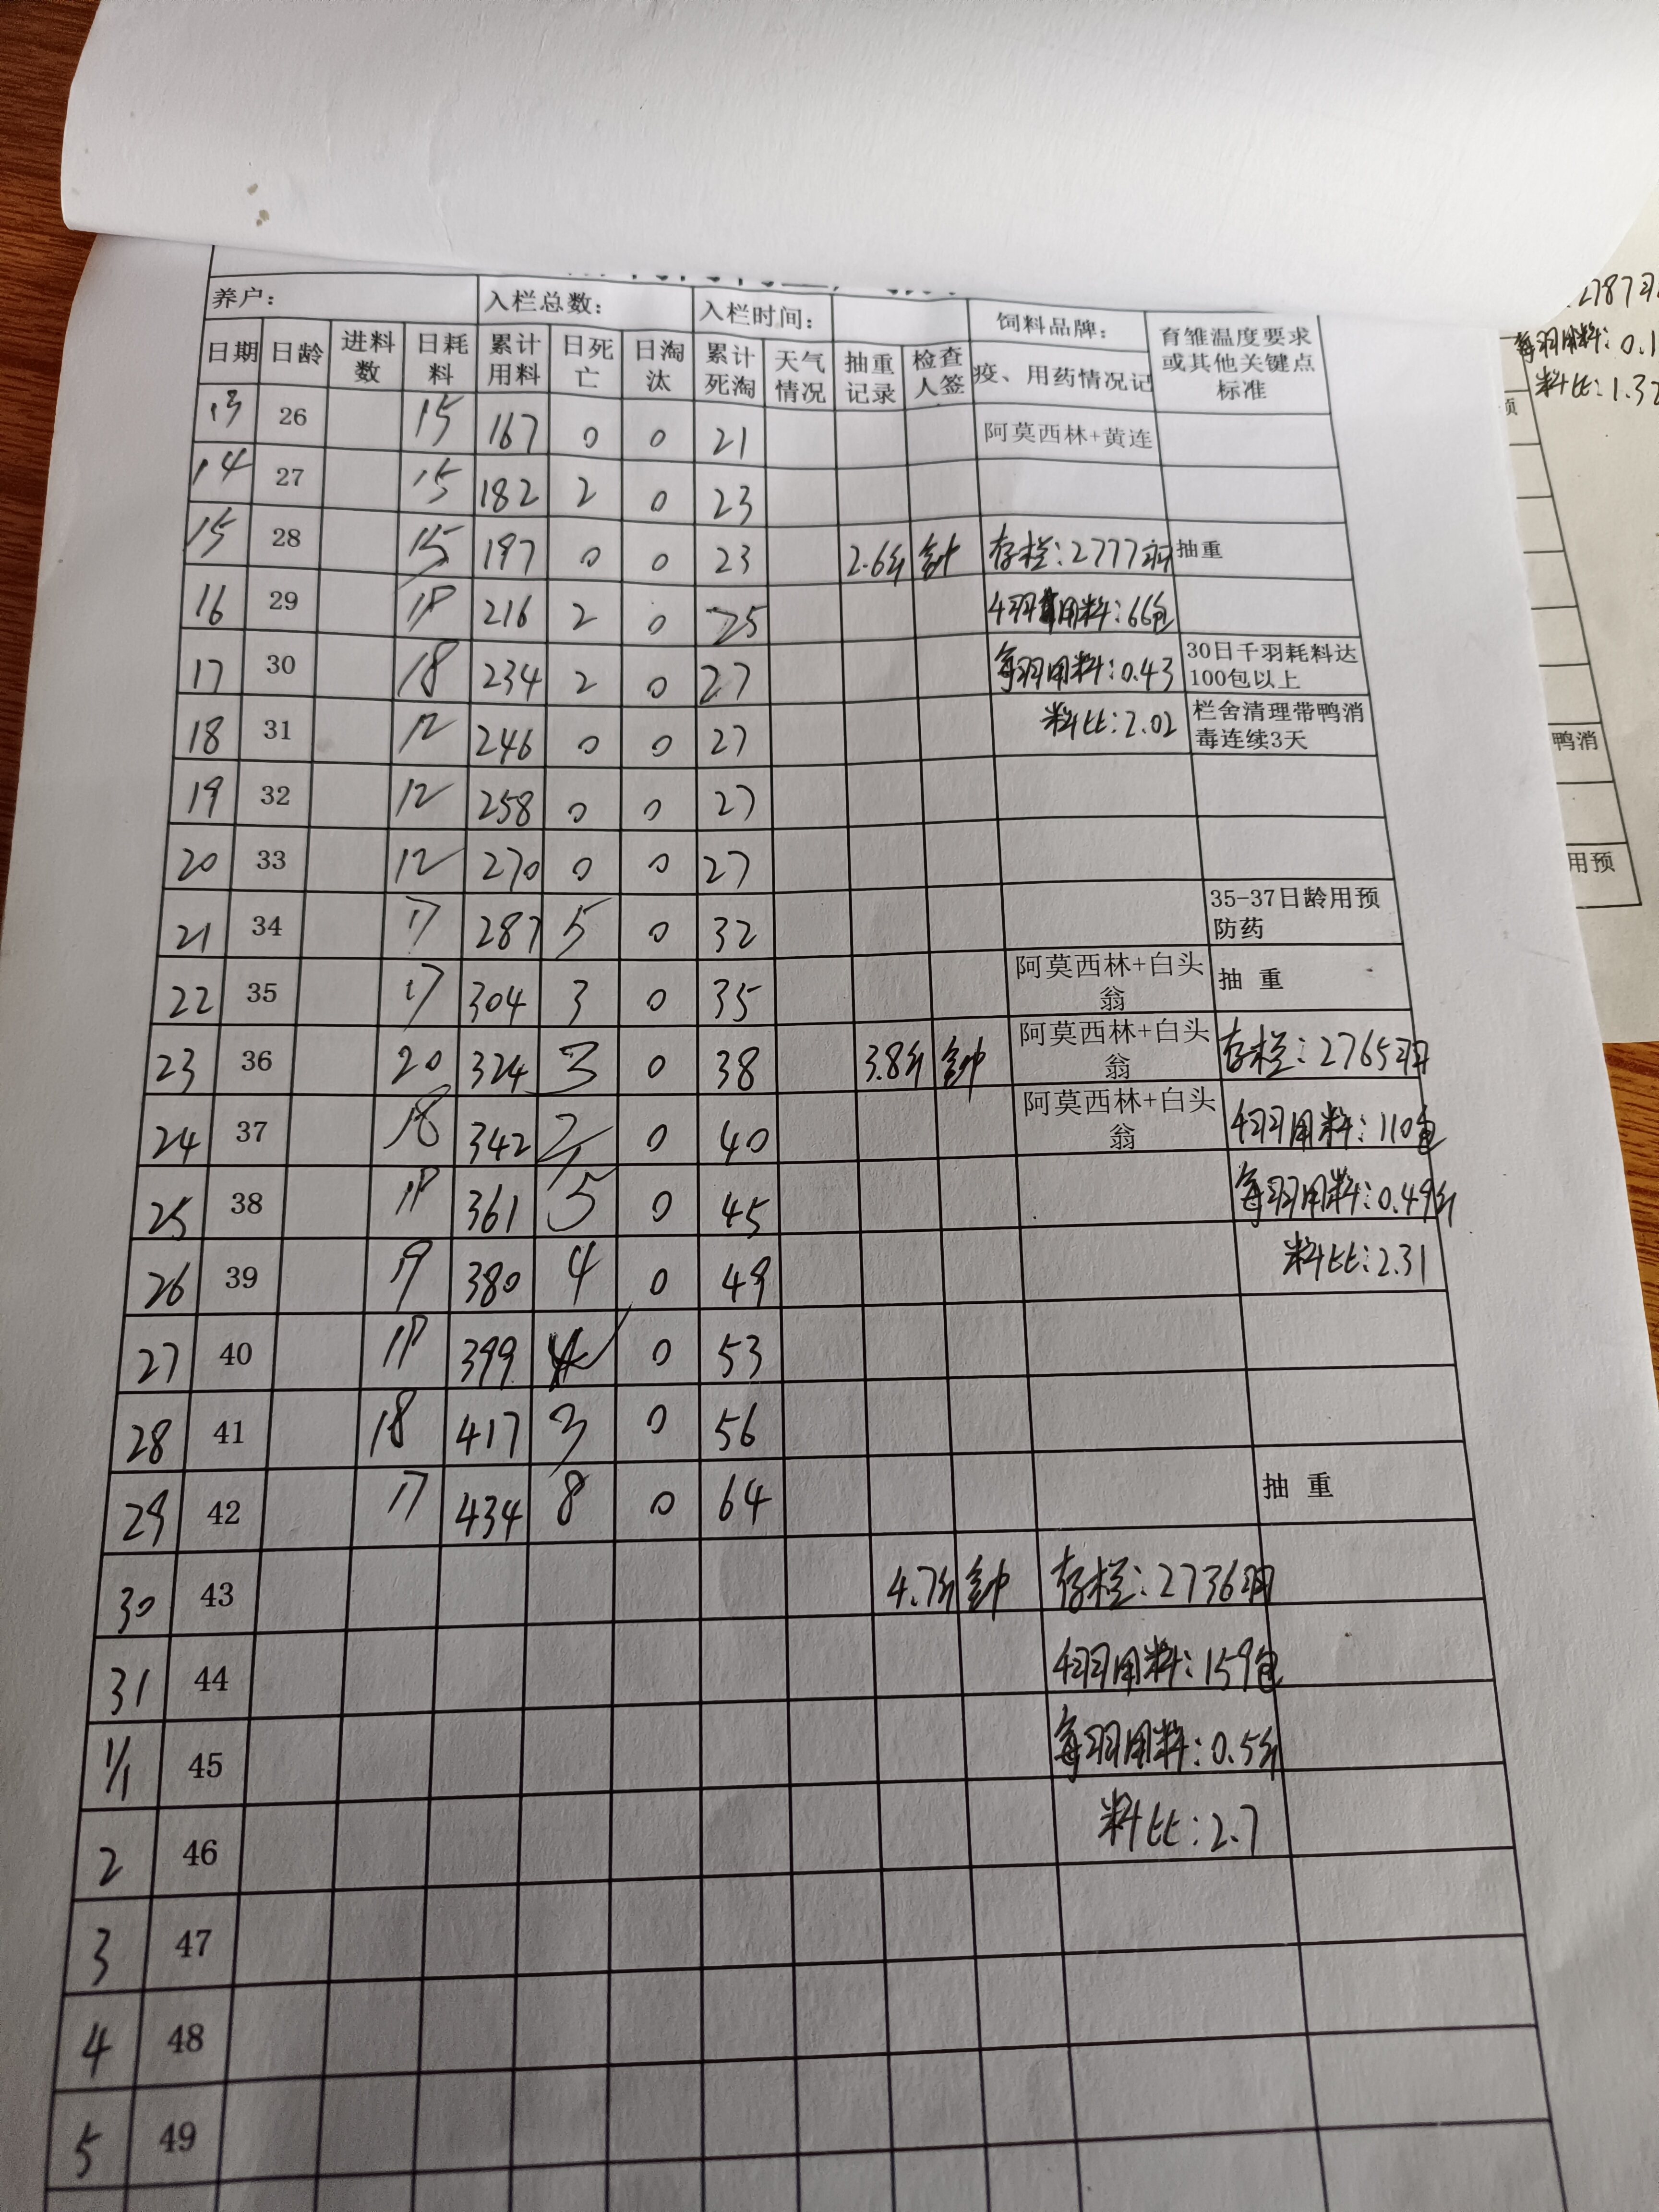 养户： 入栏总数： 入栏时间： 饲料品牌： 育雏温度要求或其他关键点标准
日期 日龄 进料数 日耗料 累计用料 日死亡 日淘汰 累计死淘 天气情况 抽重记录 检查人签 疫、用药情况记
13 26 15 167 0 0 21 阿莫西林+黄连
14 27 15 182 2 0 23
15 28 15 197 0 0 23 2.6斤 存栏：2777羽 抽重
16 29 216 2 0 25 羽用料：66包
17 30 18 234 2 0 27 每羽用料：0.43 30日千羽耗料达100包以上
18 31 12 246 0 0 27 料比：2.02 栏舍清理带鸭消毒连续3天
19 32 12 258 0 0 27
20 33 12 270 0 0 27
21 34 17 287 5 0 32 35-37日龄用预防药
22 35 17 304 3 0 35 阿莫西林+白头翁 抽 重
23 36 20 324 3 0 38 3.8斤 阿莫西林+白头翁 存栏：2765羽
24 37 18 342 2 0 40 阿莫西林+白头翁 羽用料：110包
25 38 19 361 5 0 45 每羽用料：0.49斤
26 39 19 380 4 0 49 料比：2.31
27 40 19 399 4 0 53
28 41 18 417 3 0 56
29 42 17 434 8 0 64 抽 重
30 43 4.7斤 存栏：2736羽
31 44 羽用料：159包
1/1 45 每羽用料：0.5斤
2 46 料比：2.7
3 47
4 48
5 49
2787羽
每羽用料：0.1
料比：1.32
鸭消
用预